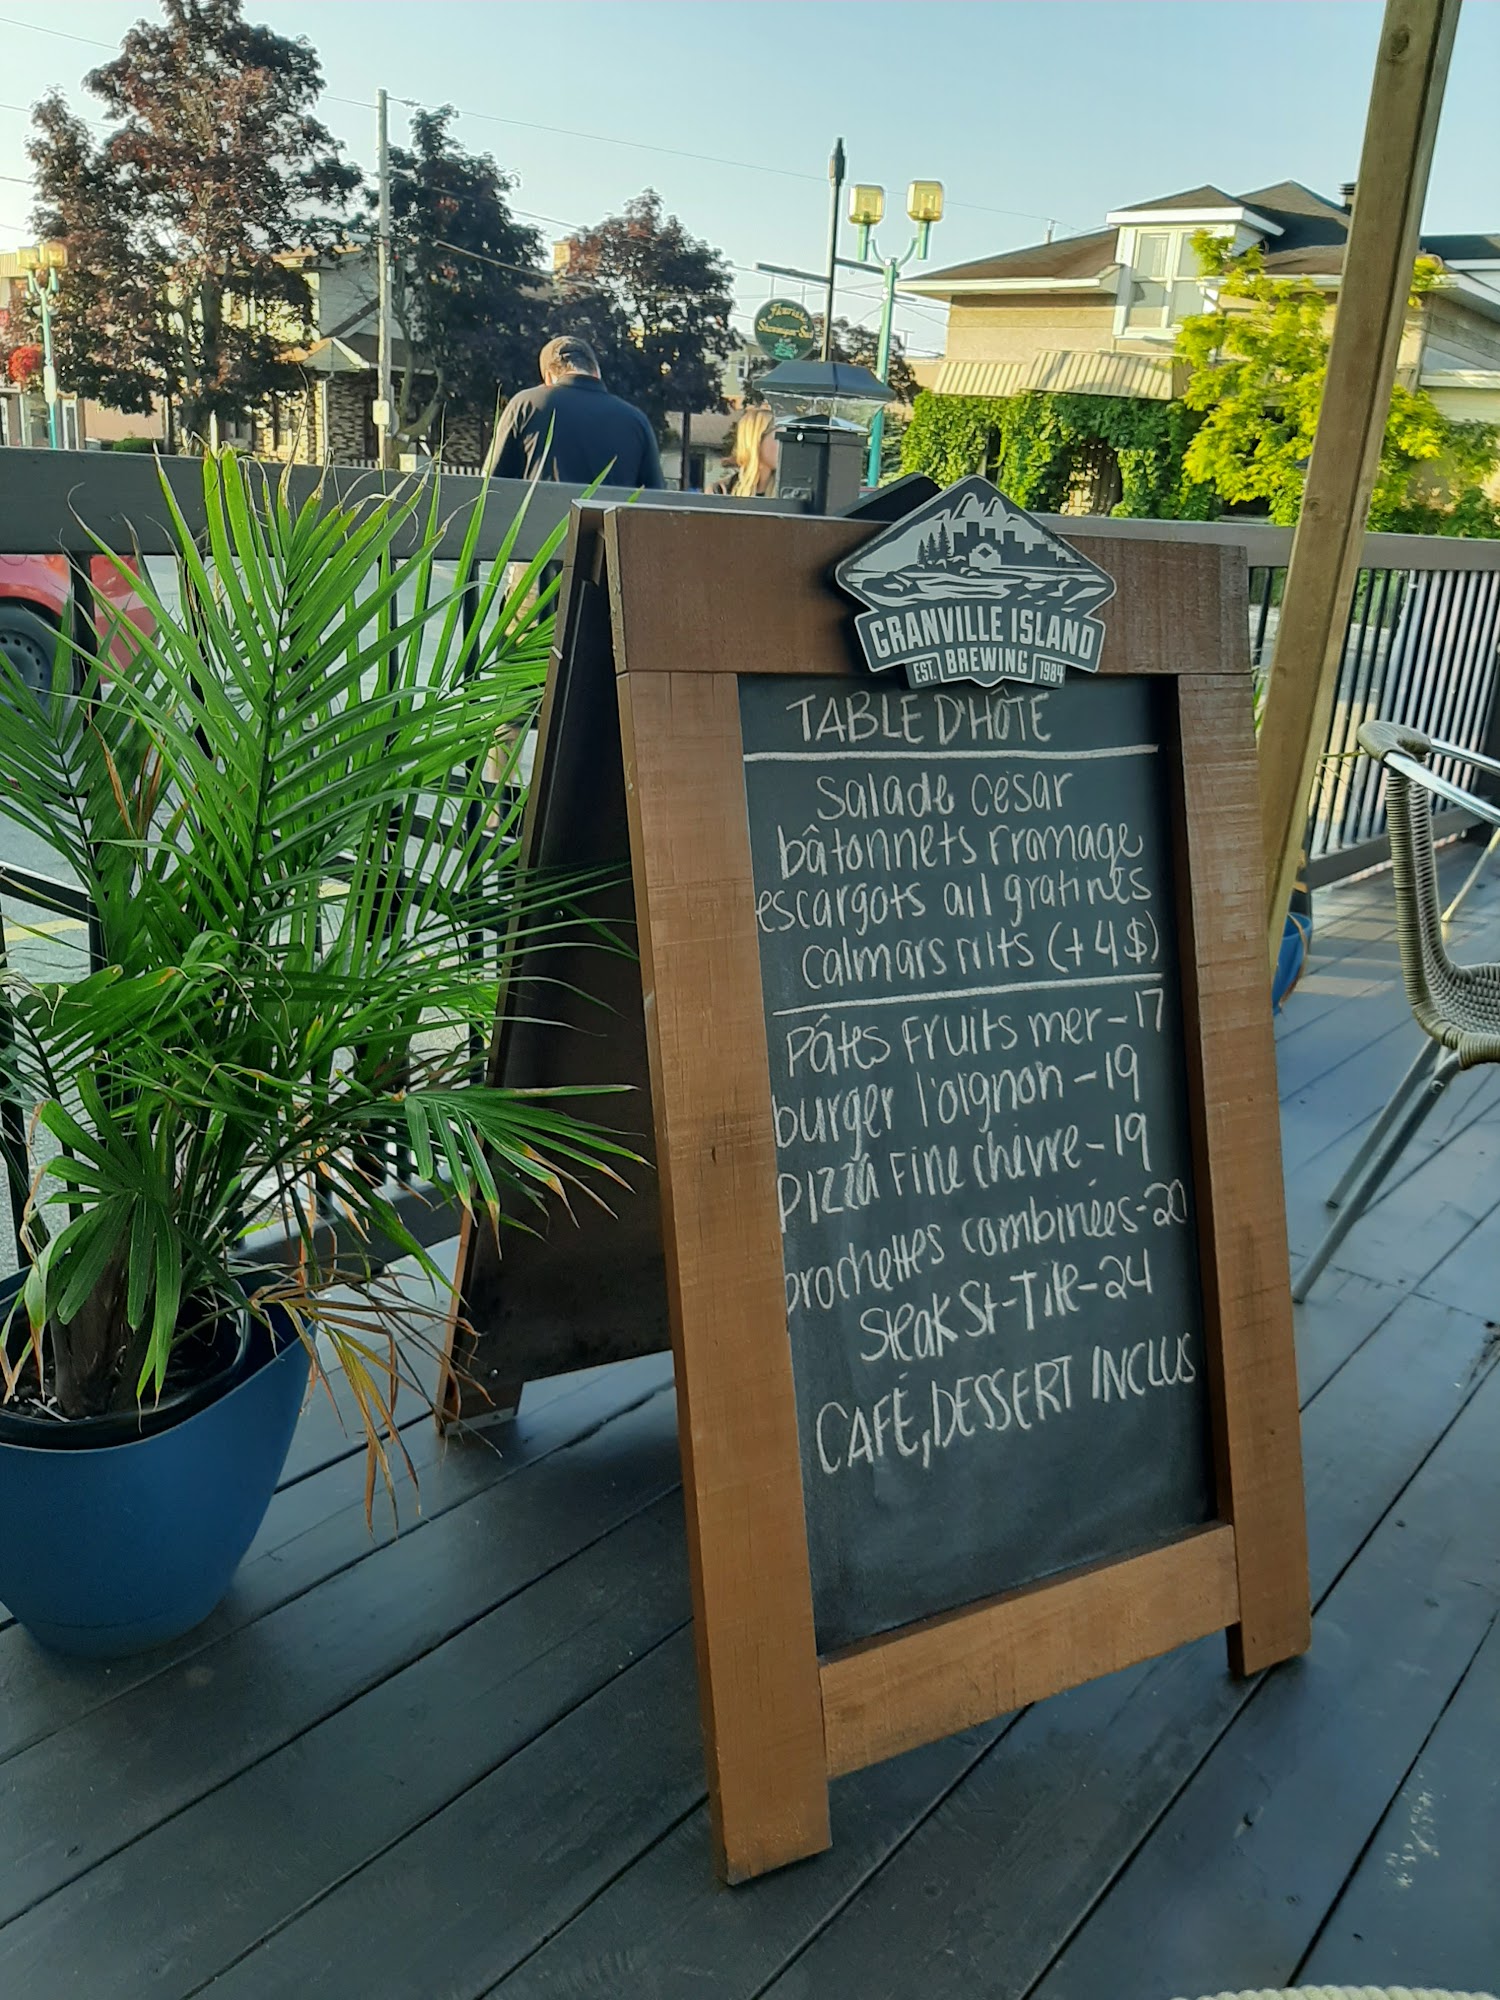 GRANVILLE ISLAND
EST. BREWING 1984
TABLE D'HÔTE
salade césar
bâtonnets fromage
escargots ail gratinés
calmars frits (+4$)
Pâtes Fruits mer-17
burger l'oignon-19
pizza Fine chèvre-19
brochettes combinées-20
Steak St-Tite-24
CAFÉ, DESSERT INCLUS